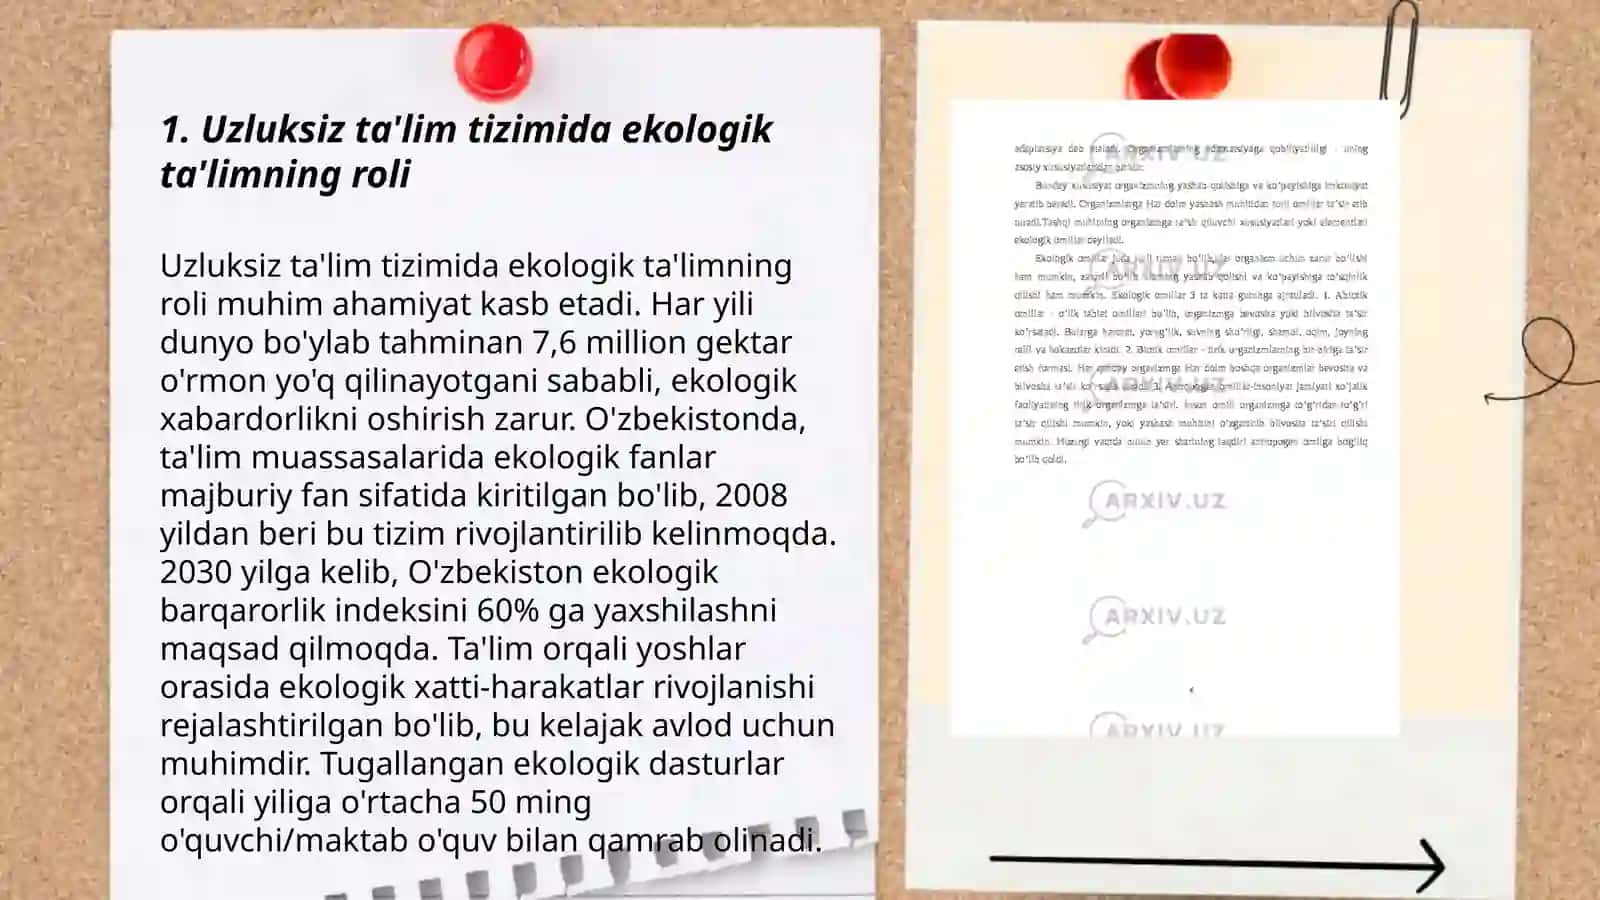 1. Uzluksiz ta'lim tizimida ekologik
ta'limning roli
Uzluksiz ta'lim tizimida ekologik ta'limning
roli muhim ahamiyat kasb etadi. Har yili
dunyo bo'ylab tahminan 7,6 million gektar
o'rmon yo'q qilinayotgani sababli, ekologik
xabardorlikni oshirish zarur. O'zbekistonda,
ta'lim muassasalarida ekologik fanlar
majburiy fan sifatida kiritilgan bo'lib, 2008
yildan beri bu tizim rivojlantirilib kelinmoqda.
2030 yilga kelib, O'zbekiston ekologik
barqarorlik indeksini 60% ga yaxshilashni
maqsad qilmoqda. Ta'lim orqali yoshlar
orasida ekologik xatti-harakatlar rivojlanishi
rejalashtirilgan bo'lib, bu kelajak avlod uchun
muhimdir. Tugallangan ekologik dasturlar
orqali yiliga o'rtacha 50 ming
o'quvchi/maktab o'quv bilan qamrab olinadi.
asosiy
Bunday xususiyat organizmning yashab qolishiga va ko'payishiga imkoniyat
yaratib beradi. Organizmlarga Har doim yashash muhitidan turli omillar ta'sir etib
turadi.Tashqi muhitning organizmga ta'sir qiluvchi xususiyatlari yoki elementlari
ekologik omillar deyiladi.
ham mumkin, yashab qolishi va ko'payishiga to'sqinlik
qilishi ham mumkin. Ekologik omillar 3 ta katta guruhga ajratiladi. 1. Abiotik
omillar - o'lik tabiat omillari bo'lib, organizmga bevosita yoki bilvosita ta'sir
ko'rsatadi. Bularga harorat, yorug'lik, suvning sho'rligi, shamol, oqim, joyning
relifi va hokazolar kiradi. 2. Biotik omillar - tirik organizmlarning bir-biriga ta'sir
etish formasi. Har qanday organizmga Har doim boshqa organizmlar bevosita va
bilvosita ta'sir
faoliyatining tirik organizmga ta'siri. Inson omili organizmga to'g'ridan-to'g'ri
ta'sir qilishi mumkin, yoki yashash muhitini o'zgartirib bilvosita ta'siri qilishi
mumkin. Hozirgi vaqtda butun yer sharining taqdiri antropogen omilga bog'liq
bo'lib qoldi.
ARXIV.UZ
ARXIV.UZ
ARXIV.UZ
ARXIV.UZ
ARXIV.UZ
ARXIV.UZ